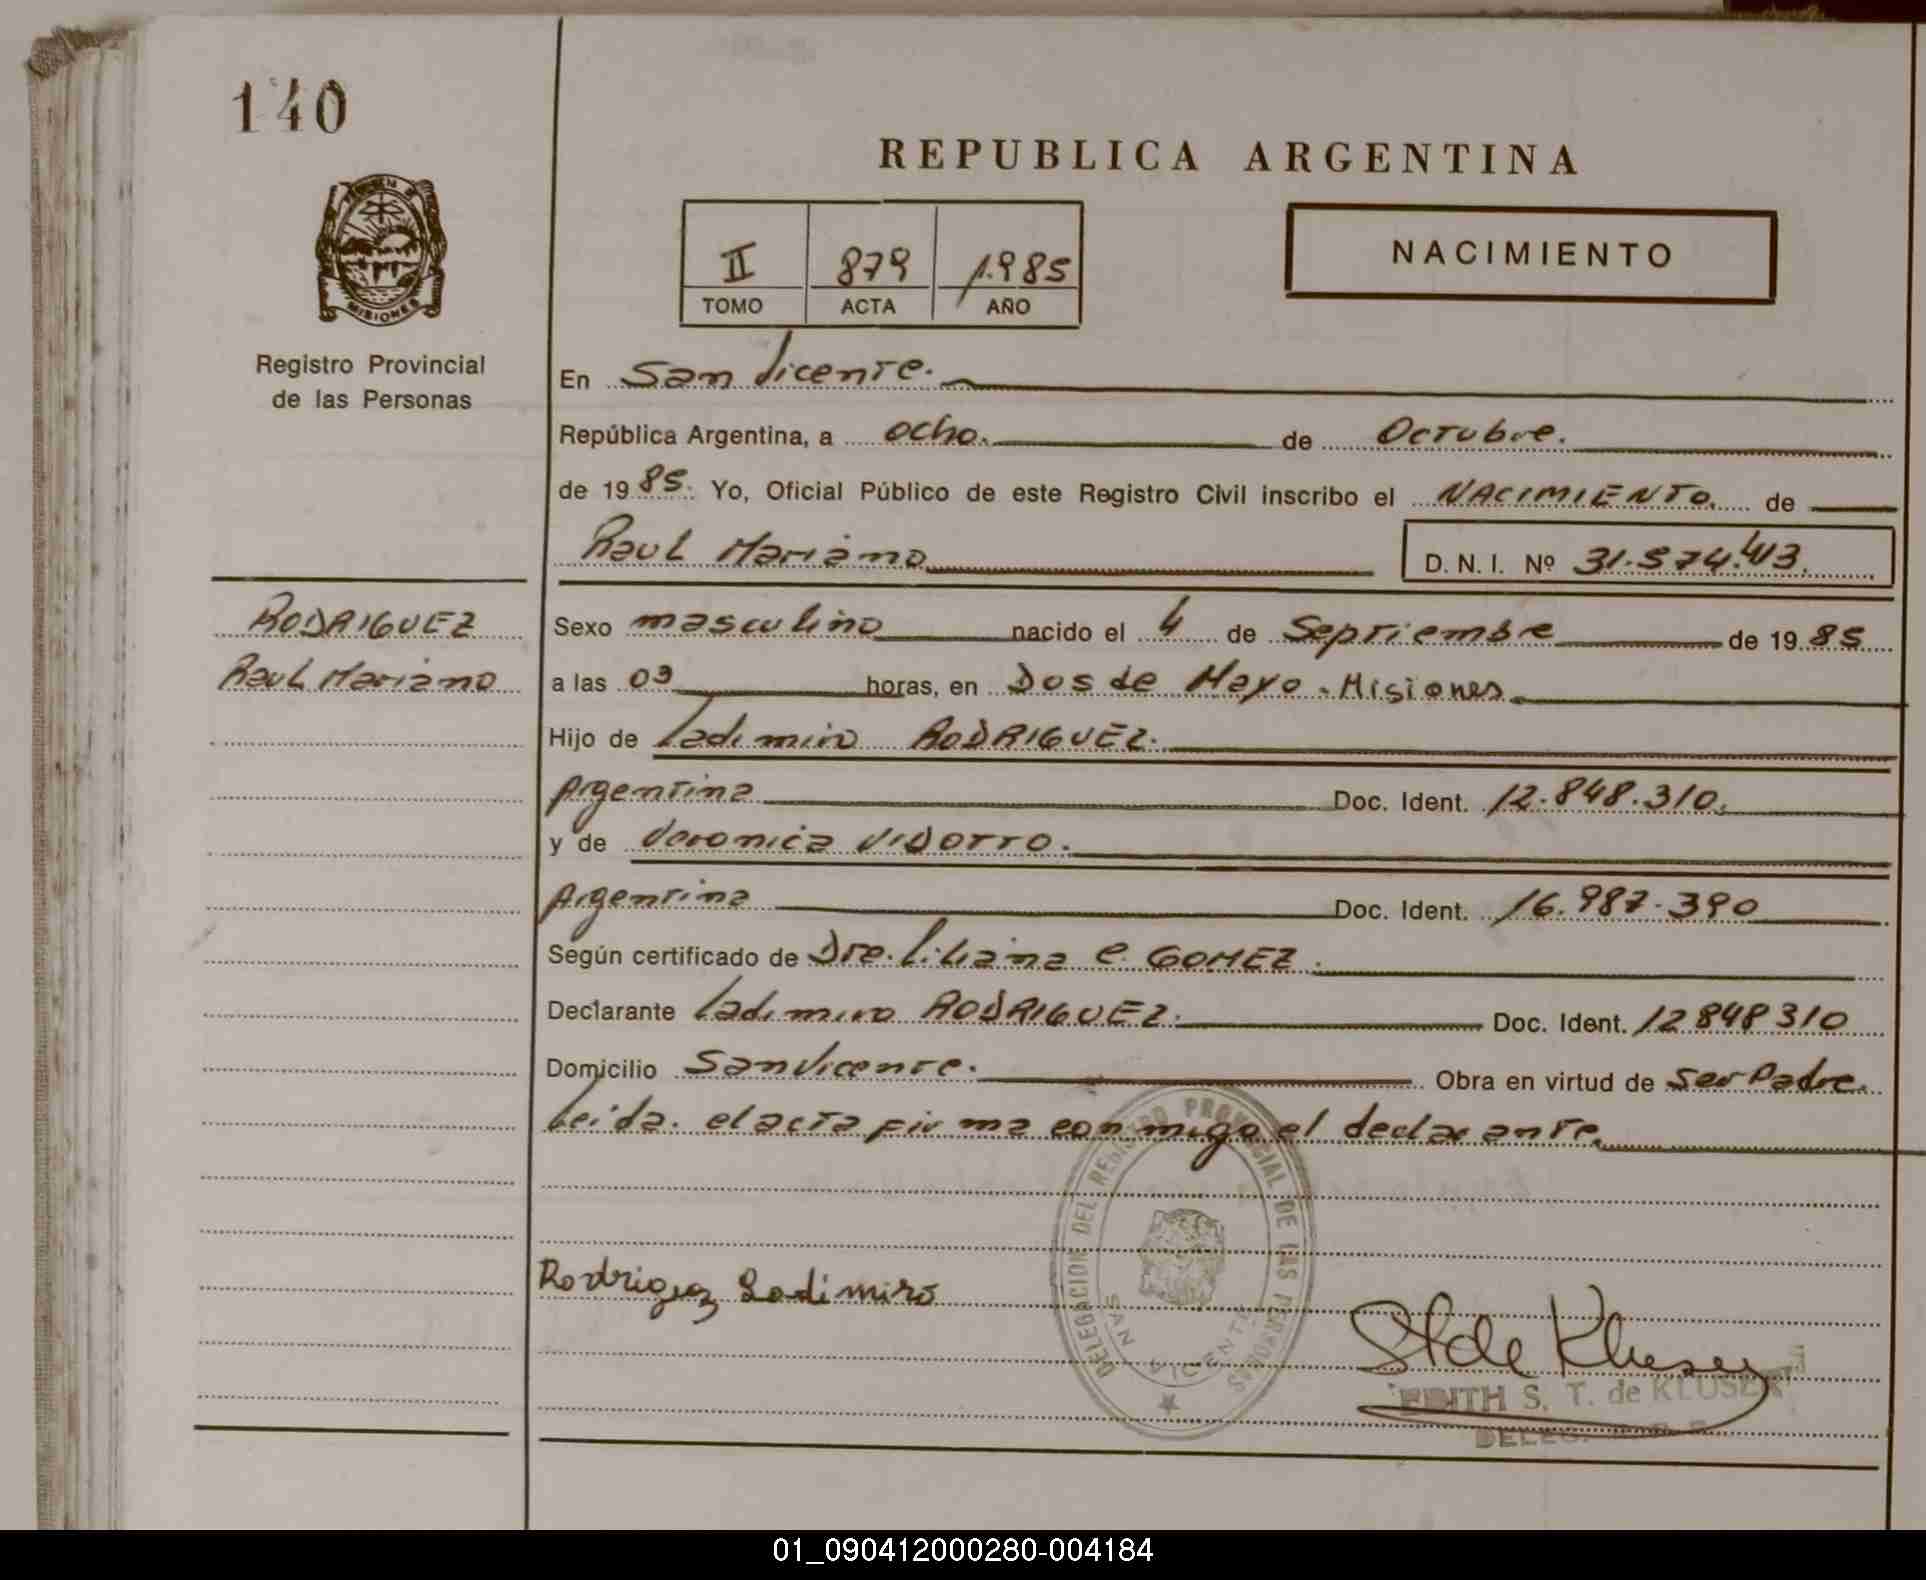 140
REPUBLICA ARGENTINA
II 879 1.985
TOMO ACTA AÑO
NACIMIENTO
MISIONES
Registro Provincial
de las Personas
En San Vicente.
República Argentina, a ocho. de Octubre.
de 1985. Yo, Oficial Público de este Registro Civil inscribo el NACIMIENTO. de
Raul Mariano D. N. I. Nº 31.574.413.
RODRIGUEZ
Raul Mariano
Sexo masculino nacido el 4 de Septiembre de 1985
a las 03 horas, en Dos de Mayo. Misiones
Hijo de Ladimiro RODRIGUEZ.
Argentina Doc. Ident. 12.848.310.
y de Veronica VIDOTTO.
Argentina Doc. Ident. 16.987.390
Según certificado de Dra. Liliana E. GOMEZ.
Declarante Ladimiro RODRIGUEZ. Doc. Ident. 12848310
Domicilio San Vicente. Obra en virtud de Ser Padre.
Leida. el acta firma conmigo el declarante.
DELEGACION DEL REGISTRO PROVINCIAL DE LAS PERSONAS
SAN VICENTE
Rodriguez Ladimiro
St de Kluser
EDITH S. T. de KLUSER
01_090412000280-004184